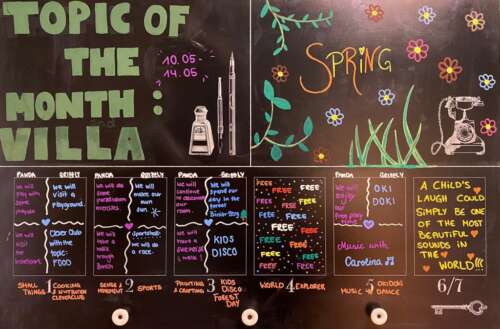 TOPIC OF
THE
MONTH
VILLA :
10.05 -
14.05
SPRING
PANDA GRIZZLY
We will
play with
some
We will
visit a
playground.
We will
visit
the
Clever Club
with the
topic:
FOOD
PANDA GRIZZLY
We will
do some
exercises.
We will
make our
own fun.
We will
have a
walk
through
the
Sportsday:
we will
do a
race.
PANDA GRIZZLY
We will
continue
to
our room.
We will
spend our
day in the
forest
We will
have a
KIDS
DISCO
FREE FREE FREE
FREE FREE FREE
FREE FREE FREE
FREE FREE FREE
FREE FREE FREE
FREE FREE FREE
FREE FREE
PANDA GRIZZLY
We will
enjoy
our
free play
OKI
DOKI
Music with
Carolina
A CHILD'S
LAUGH COULD
SIMPLY BE ONE
OF THE MOST
BEAUTIFUL
SOUNDS IN
THE
WORLD!!!
SMALL
THINGS
1
COOKING
& NUTRITION
CLEVERCLUB
SENSE &
MOVEMENT
2
SPORTS
PAINTING &
CRAFTING
3
KIDS
DISCO
FOREST
DAY
WORLD 4 EXPLORER
MUSIC 5
OKIDOKI
DANCE
6/7